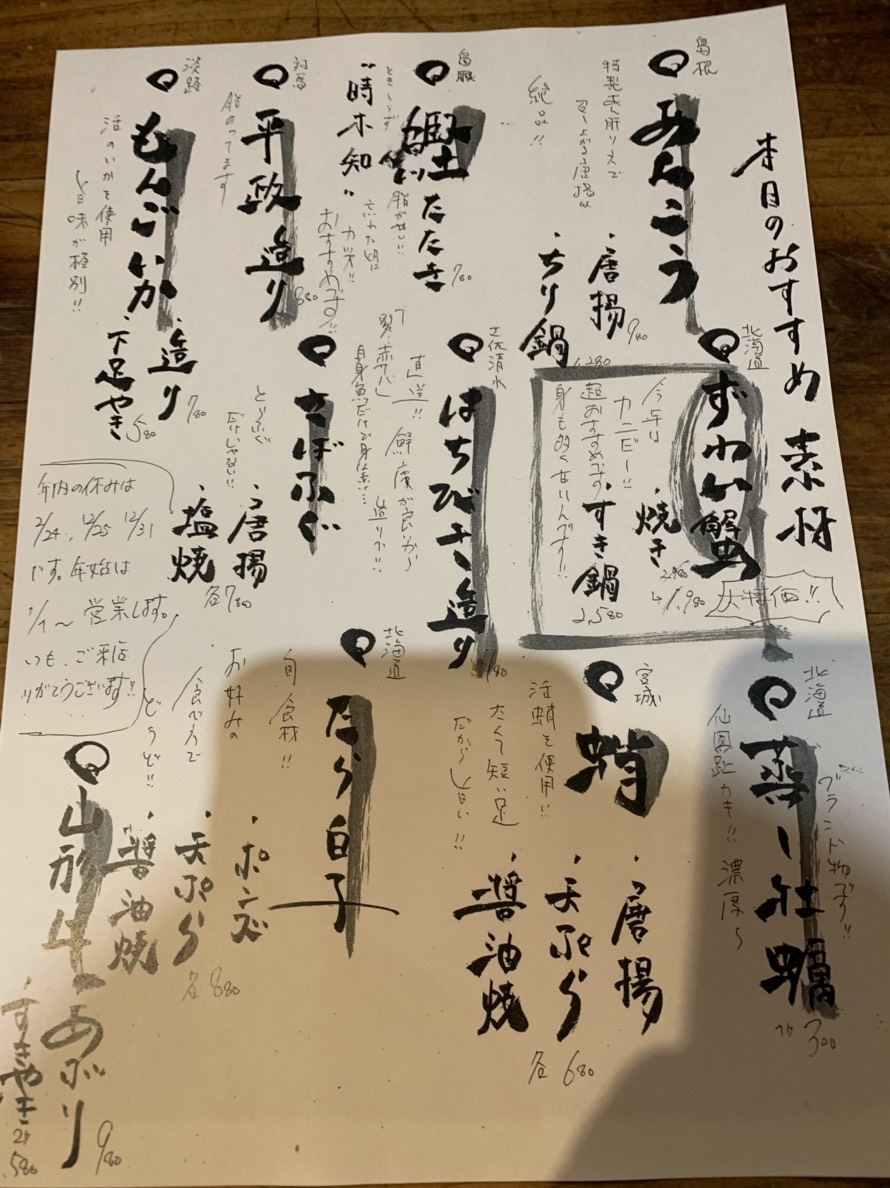 本日のおすすめ 素材
島根
あんこう
特製あん肝ソースで
召し上がる唐揚は
絶品!!
・唐揚 980
・ちり鍋 1,280
島根
鰹土たたき 780
脂がせい!!
ときしらず
"時不知"
忘れた頃に
カツオ!!
おすすめです!!
対馬
平政造り 880
脂のってます
淡路
もんごいか
活のいかを使用
旨味が格別!!
・造り 780
・下足やき 580
北海道
ずわい蟹
今年は
カニビー!!
超おすすめです。
身も多く甘いんです!!
・焼き 2,480
↳1,980
大特価!!
・すき鍋 2,580
土佐清水
はちびき造り 780
直送!! 鮮度が良いから
造りで!!
「赤サバ」
白身魚だけど身は赤…
さばふぐ
とらふぐ
だけじゃない!!
・唐揚
・塩焼
各780
年内の休みは
12/24、12/25 12/31
です。年始は
1/1〜営業します。
いつも、ご来店
ありがとうございます!!
北海道
蒸し牡蠣
ブランド物です!!
仙鳳趾カキ!! 濃厚〜
1ケ 300
宮城
蛸
活蛸を使用!!
太くて短い足
だから旨い!!
・唐揚
・天ぷら
・醤油焼
各 680
北海道
たら白子
旬食材!!
お好みの
食べ方で
どうぞ!!
・ポンズ
・天ぷら
・醤油焼
各 880
山形牛
・あぶり 980
・すきやき 2,580